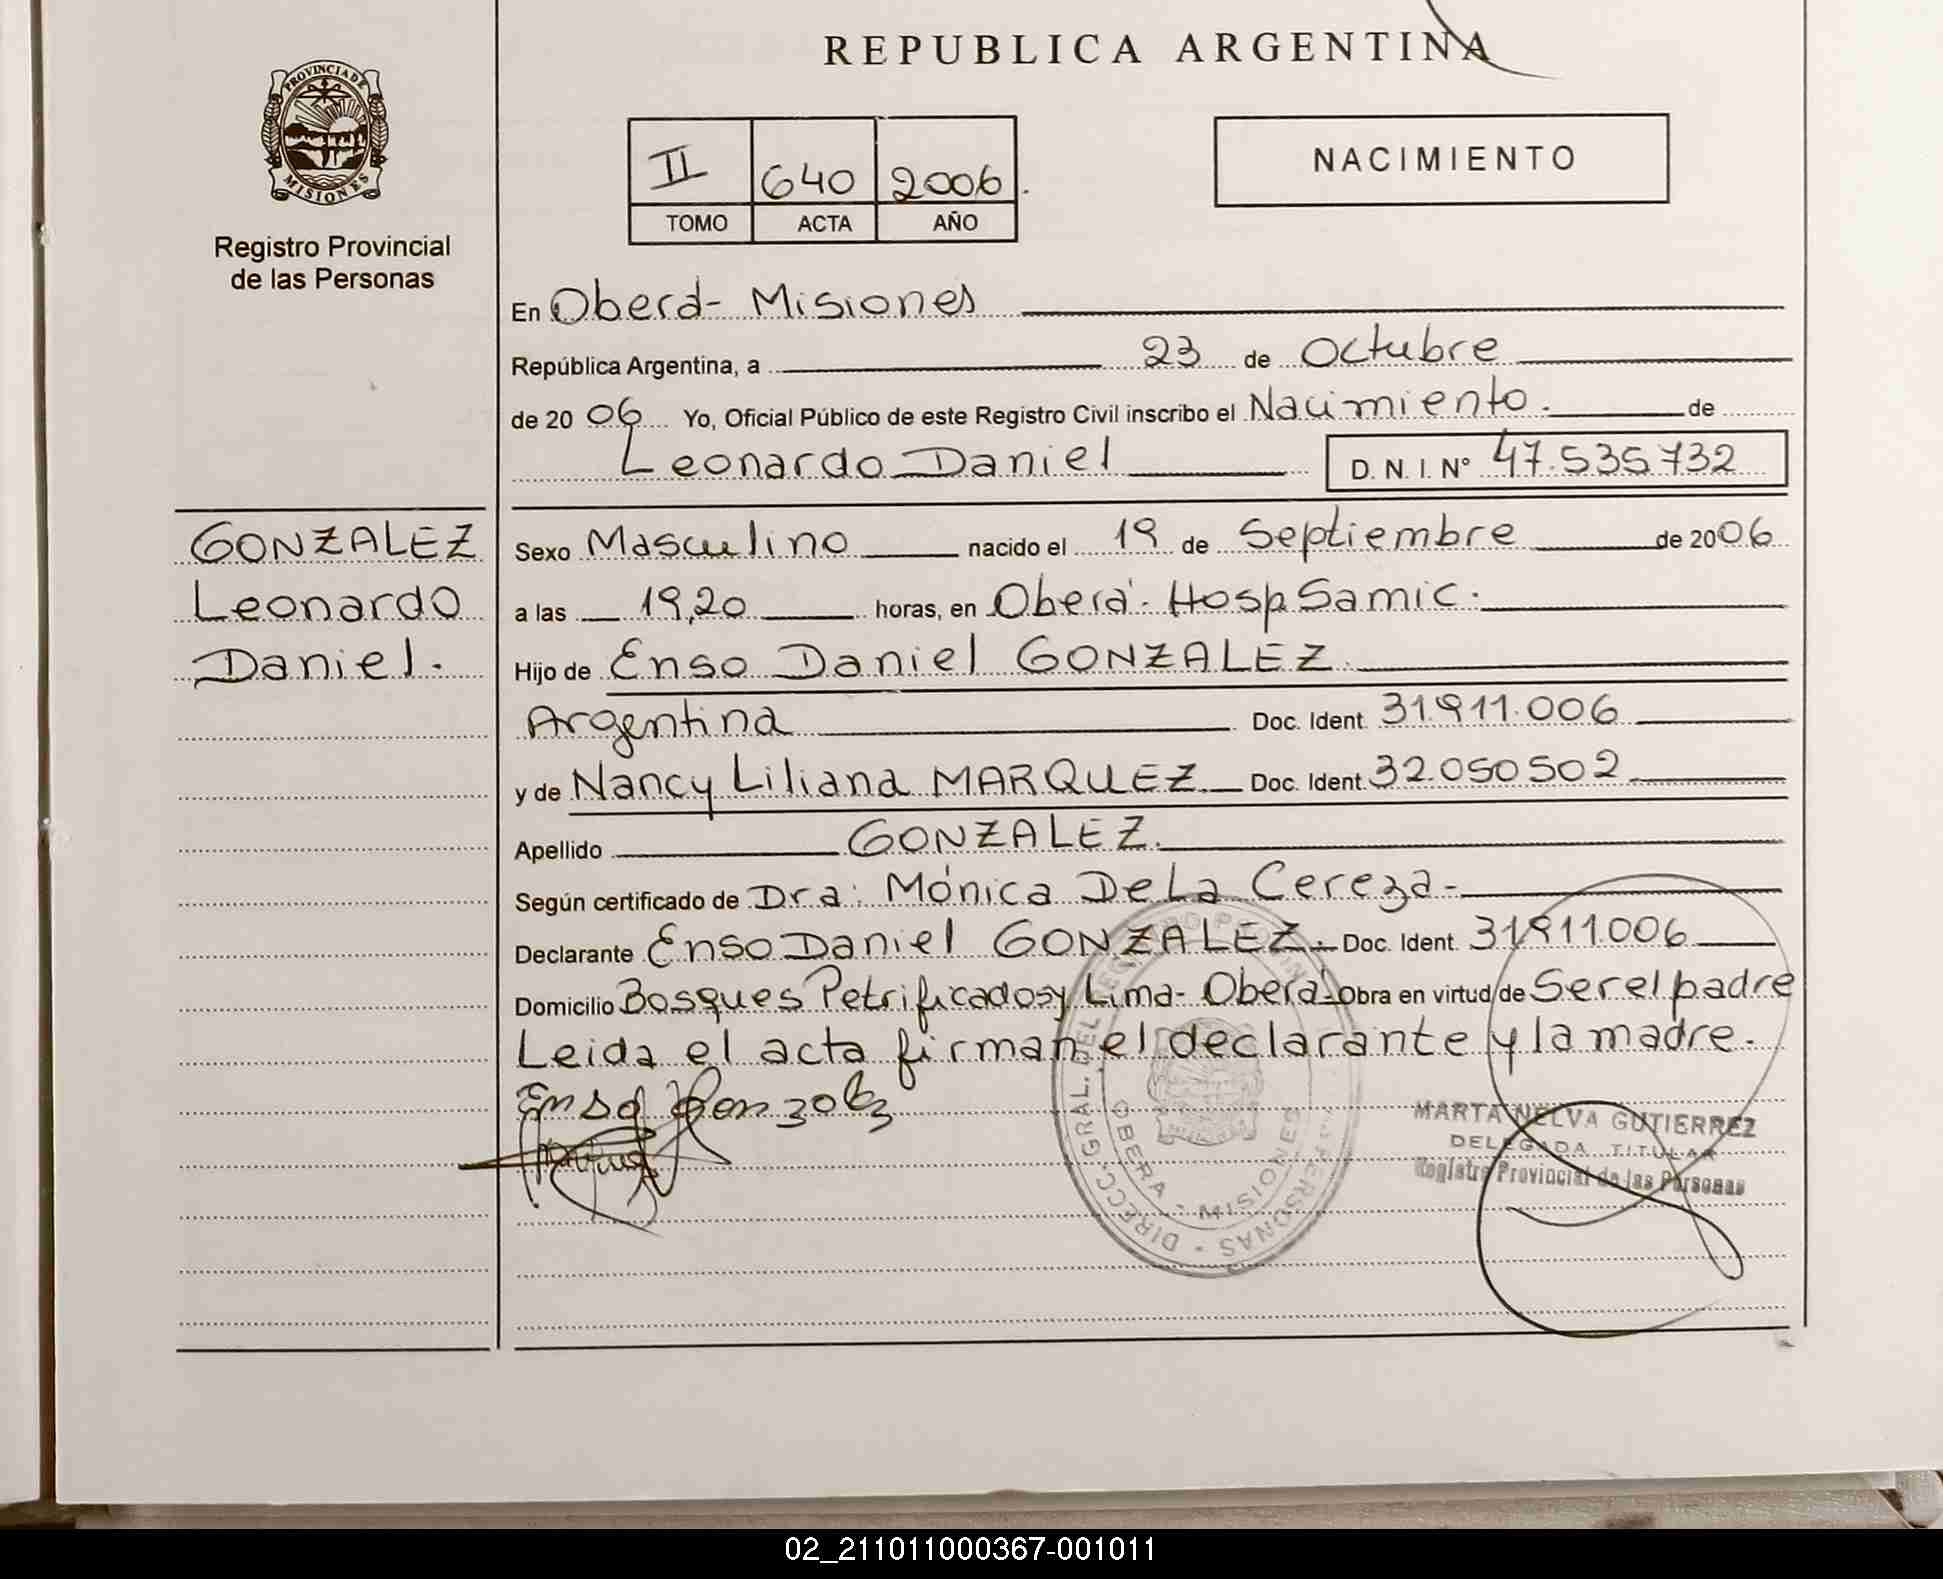 REPUBLICA ARGENTINA
PROVINCIA DE MISIONES
Registro Provincial
de las Personas
II 640 2006.
TOMO ACTA AÑO
NACIMIENTO
En Oberá- Misiones
República Argentina, a 23 de Octubre
de 20 06 Yo, Oficial Público de este Registro Civil inscribo el Nacimiento. de
Leonardo Daniel D. N. I. N° 47.535.732
GONZALEZ
Leonardo
Daniel.
Sexo Masculino nacido el 19 de Septiembre de 2006
a las 19,20 horas, en Oberá- Hosp Samic.
Hijo de Enso Daniel GONZALEZ.
Argentina Doc. Ident. 31.911.006
y de Nancy Liliana MARQUEZ. Doc. Ident. 32.050.502
Apellido GONZALEZ.
Según certificado de Dra: Mónica De La Cereza-
Declarante Enso Daniel GONZALEZ. Doc. Ident. 31.911.006
Domicilio Bosques Petrificados y Lima- Oberá- Obra en virtud de Ser el padre
Leida el acta firman el declarante y la madre.
Enso Gonzalez
DIRECC. GRAL. DEL REGISTRO PROVINCIAL DE LAS PERSONAS -
OBERA - MISIONES
MARTA NELVA GUTIERREZ
DELEGADA TITULAR
Registro Provincial de las Personas
02_211011000367-001011